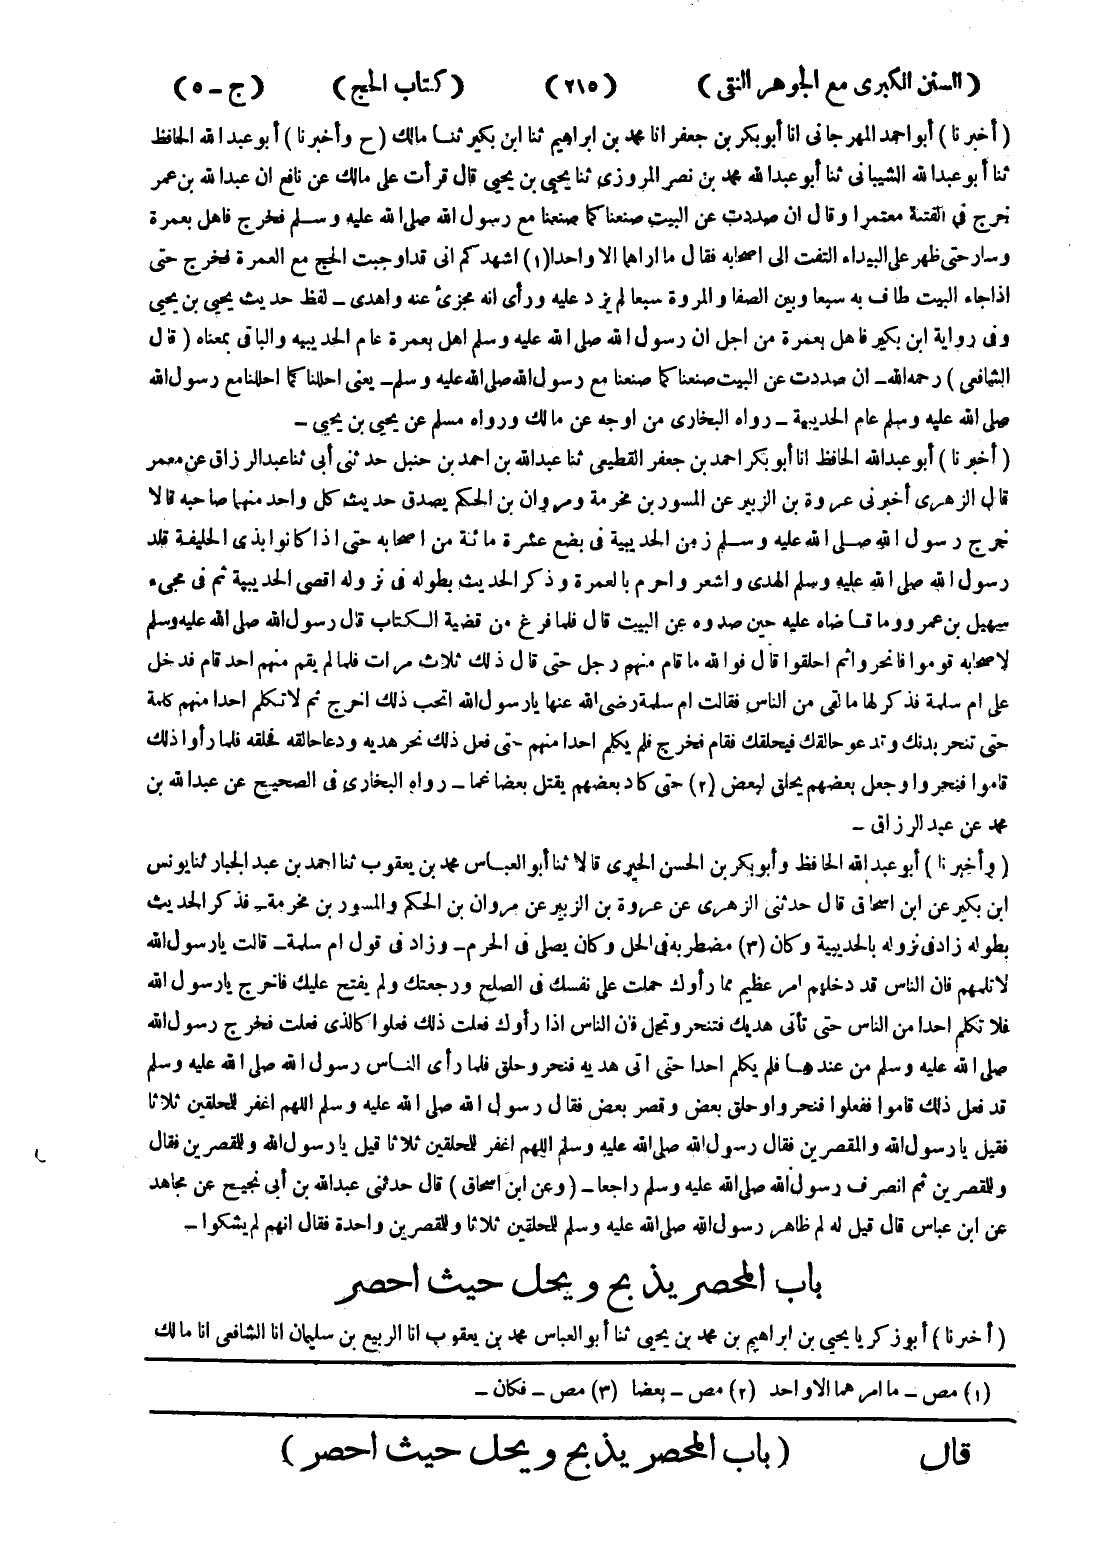 (السنن الكبرى مع الجوهر النقى) (٢١٥) (كتاب الحج) (ج - ٥)
(أخبرنا) أبو احمد المهرجانى انا أبو بكر بن جعفر انا محمد بن ابراهيم ثنا ابن بكير ثنا مالك (ح وأخبرنا) أبو عبد الله الحافظ
ثنا أبو عبد الله الشيبانى ثنا أبو عبد الله محمد بن نصر المروزى ثنا يحيى بن يحيى قال قرأت على مالك عن نافع ان عبد الله بن عمر
خرج فى الفتنة معتمرا وقال ان صددت عن البيت صنعنا كما صنعنا مع رسول الله صلى الله عليه وسلم فخرج فاهل بعمرة
وسار حتى ظهر على البيداء التفت الى اصحابه فقال ما اراهما الا واحدا(١) اشهدكم انى قد اوجبت الحج مع العمرة فخرج حتى
اذا جاء البيت طاف به سبعا وبين الصفا والمروة سبعا لم يزد عليه ورأى انه مجزئ عنه واهدى - لفظ حديث يحيى بن يحيى
وفى رواية ابن بكير فاهل بعمرة من اجل ان رسول الله صلى الله عليه وسلم اهل بعمرة عام الحديبيه والباقى بمعناه (قال
الشافعى) رحمه الله- ان صددت عن البيت صنعنا كما صنعنا مع رسول الله صلى الله عليه وسلم- يعنى احللنا كما احللنا مع رسول الله
صلى الله عليه وسلم عام الحديبية - رواه البخارى من اوجه عن مالك ورواه مسلم عن يحيى بن يحيى -
(أخبرنا) أبو عبد الله الحافظ انا أبو بكر احمد بن جعفر القطيعى ثنا عبد الله بن احمد بن حنبل حدثنى أبى ثنا عبد الرزاق عن معمر
قال الزهرى أخبرنى عروة بن الزبير عن المسور بن مخرمة ومروان بن الحكم يصدق حديث كل واحد منهما صاحبه قالا
خرج رسول الله صلى الله عليه وسلم زمن الحديبية فى بضع عشرة مائة من اصحابه حتى اذا كانوا بذى الحليفة قلد
رسول الله صلى الله عليه وسلم الهدى واشعر واحرم بالعمرة وذكر الحديث بطوله فى نزوله اقصى الحديبية ثم فى مجىء
سهيل بن عمرو وما قاضاه عليه حين صدوه عن البيت قال فلما فرغ من قضية الكتاب قال رسول الله صلى الله عليه وسلم
لاصحابه قوموا فانحروا ثم احلقوا قال فوالله ما قام منهم رجل حتى قال ذلك ثلاث مرات فلما لم يقم منهم احد قام فدخل
على ام سلمة فذكر لها ما لقى من الناس فقالت ام سلمة رضى الله عنها يا رسول الله اتحب ذلك اخرج ثم لا تكلم احدا منهم كلمة
حتى تنحر بدنك وتدعو حالقك فيحلقك فقام فخرج فلم يكلم احدا منهم حتى فعل ذلك نحر هديه ودعا حالقه فحلقه فلما رأوا ذلك
قاموا فنحروا وجعل بعضهم يحلق لبعض (٢) حتى كاد بعضهم يقتل بعضا غما - رواه البخارى فى الصحيح عن عبد الله بن
محمد عن عبد الرزاق -
(وأخبرنا) أبو عبد الله الحافظ وأبو بكر بن الحسن الحيرى قالا ثنا أبو العباس محمد بن يعقوب ثنا احمد بن عبد الجبار ثنا يونس
ابن بكير عن ابن اسحاق قال حدثنى الزهرى عن عروة بن الزبير عن مروان بن الحكم والمسور بن مخرمة- فذكر الحديث
بطوله زاد فى نزوله بالحديبية وكان (٣) مضطربه فى الحل وكان يصلى فى الحرم- وزاد فى قول ام سلمة- قالت يا رسول الله
لا تلمهم فان الناس قد دخلهم امر عظيم مما رأوك حملت على نفسك فى الصلح ورجعتك ولم يفتح عليك فاخرج يا رسول الله
فلا تكلم احدا من الناس حتى تأتى هديك فتنحر وتحل فان الناس اذا رأوك فعلت ذلك فعلوا كالذى فعلت فخرج رسول الله
صلى الله عليه وسلم من عندها فلم يكلم احدا حتى اتى هديه فنحر وحلق فلما رأى الناس رسول الله صلى الله عليه وسلم
قد فعل ذلك قاموا ففعلوا فنحروا وحلق بعض وقصر بعض فقال رسول الله صلى الله عليه وسلم اللهم اغفر للمحلقين ثلاثا
فقيل يا رسول الله والمقصرين فقال رسول الله صلى الله عليه وسلم اللهم اغفر للمحلقين ثلاثا قيل يا رسول الله وللمقصرين فقال
وللمقصرين ثم انصرف رسول الله صلى الله عليه وسلم راجعا- (وعن ابن اسحاق) قال حدثنى عبد الله بن أبى نجيح عن مجاهد
عن ابن عباس قال قيل له لم ظاهر رسول الله صلى الله عليه وسلم للمحلقين ثلاثا وللمقصرين واحدة فقال انهم لم يشكوا -
باب المحصر يذبح ويحل حيث احصر
(أخبرنا) أبو زكريا يحيى بن ابراهيم بن محمد بن يحيى ثنا أبو العباس محمد بن يعقوب انا الربيع بن سليمان انا الشافعى انا مالك
(١) مص - ما امرهما الا واحد (٢) مص - بعضا (٣) مص - فكان -
قال (باب المحصر يذبح ويحل حيث احصر)